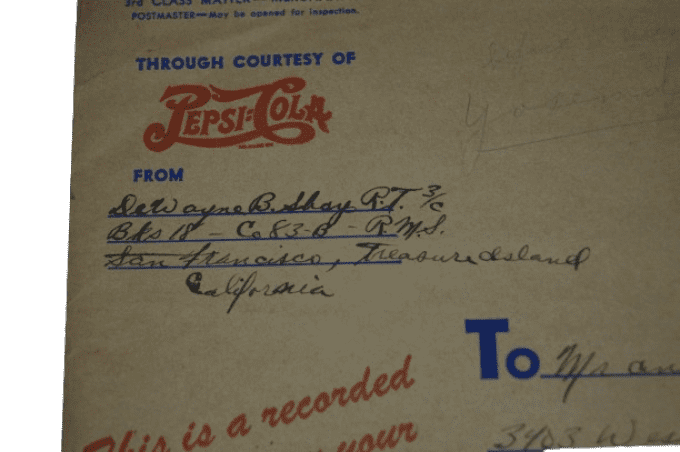 3rd CLASS MATTER
POSTMASTER—May be opened for inspection.
THROUGH COURTESY OF
PEPSI-COLA
FROM
DeWayne B. Shay R.T. 3/c
Bks 18 - Co 83-B - R.M.S.
San Francisco, Treasure Island
California
To Mr an
3403 We
This is a recorded
your